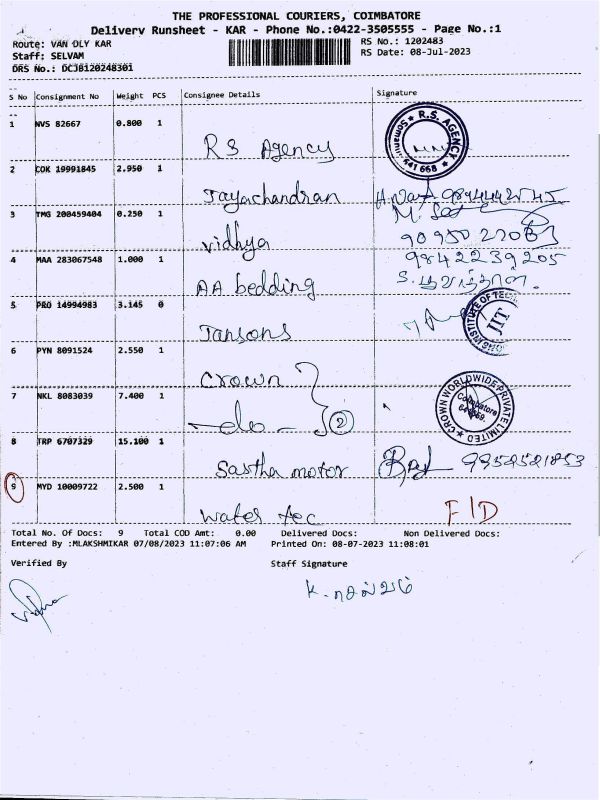 THE PROFESSIONAL COURIERS, COIMBATORE
Delivery Runsheet - KAR - Phone No.:0422-3505555 - Page No.:1
Route: VAN OLY KAR
RS No.: 1202483
Staff: SELVAM
RS Date: 08-Jul-2023
DRS No.: DCJB120248301
S No Consignment No Weight PCS Consignee Details Signature
1 NVS 82667 0.800 1
RS Agency
R.S. AGENCY
641 668
2 COK 19991845 2.950 1
Jayachandran
3 TMG 200459404 0.250 1
Vidhya
4 MAA 283067548 1.000 1
9842239205
AA bedding
5 PRO 14994983 3.145 0
Jansons
JIT
6 PYN 8091524 2.550 1
Crown
7 NKL 8083039 7.400 1
-do- 2
CROWN WORLDWIDE PRIVATE LIMITED
Coimbatore
8 TRP 6707329 15.100 1
Sastha motor
9952521853
9 MYD 10009722 2.500 1
Water tec
F/D
Total No. Of Docs: 9 Total COD Amt: 0.00 Delivered Docs: Non Delivered Docs:
Entered By :MLAKSHMIKAR 07/08/2023 11:07:06 AM Printed On: 08-07-2023 11:08:01
Verified By Staff Signature